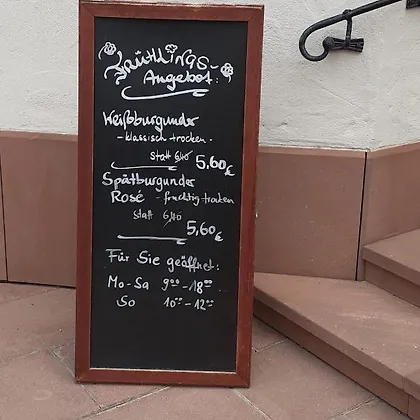 Frühlings-
Angebot:
Weißburgunder
- klassisch trocken -
statt 6,40 5,60 €
Spätburgunder
Rosé - fruchtig trocken
statt 6,40
5,60 €
Für Sie geöffnet:
Mo-Sa 9⁰⁰-18⁰⁰
So 10⁰⁰-12⁰⁰